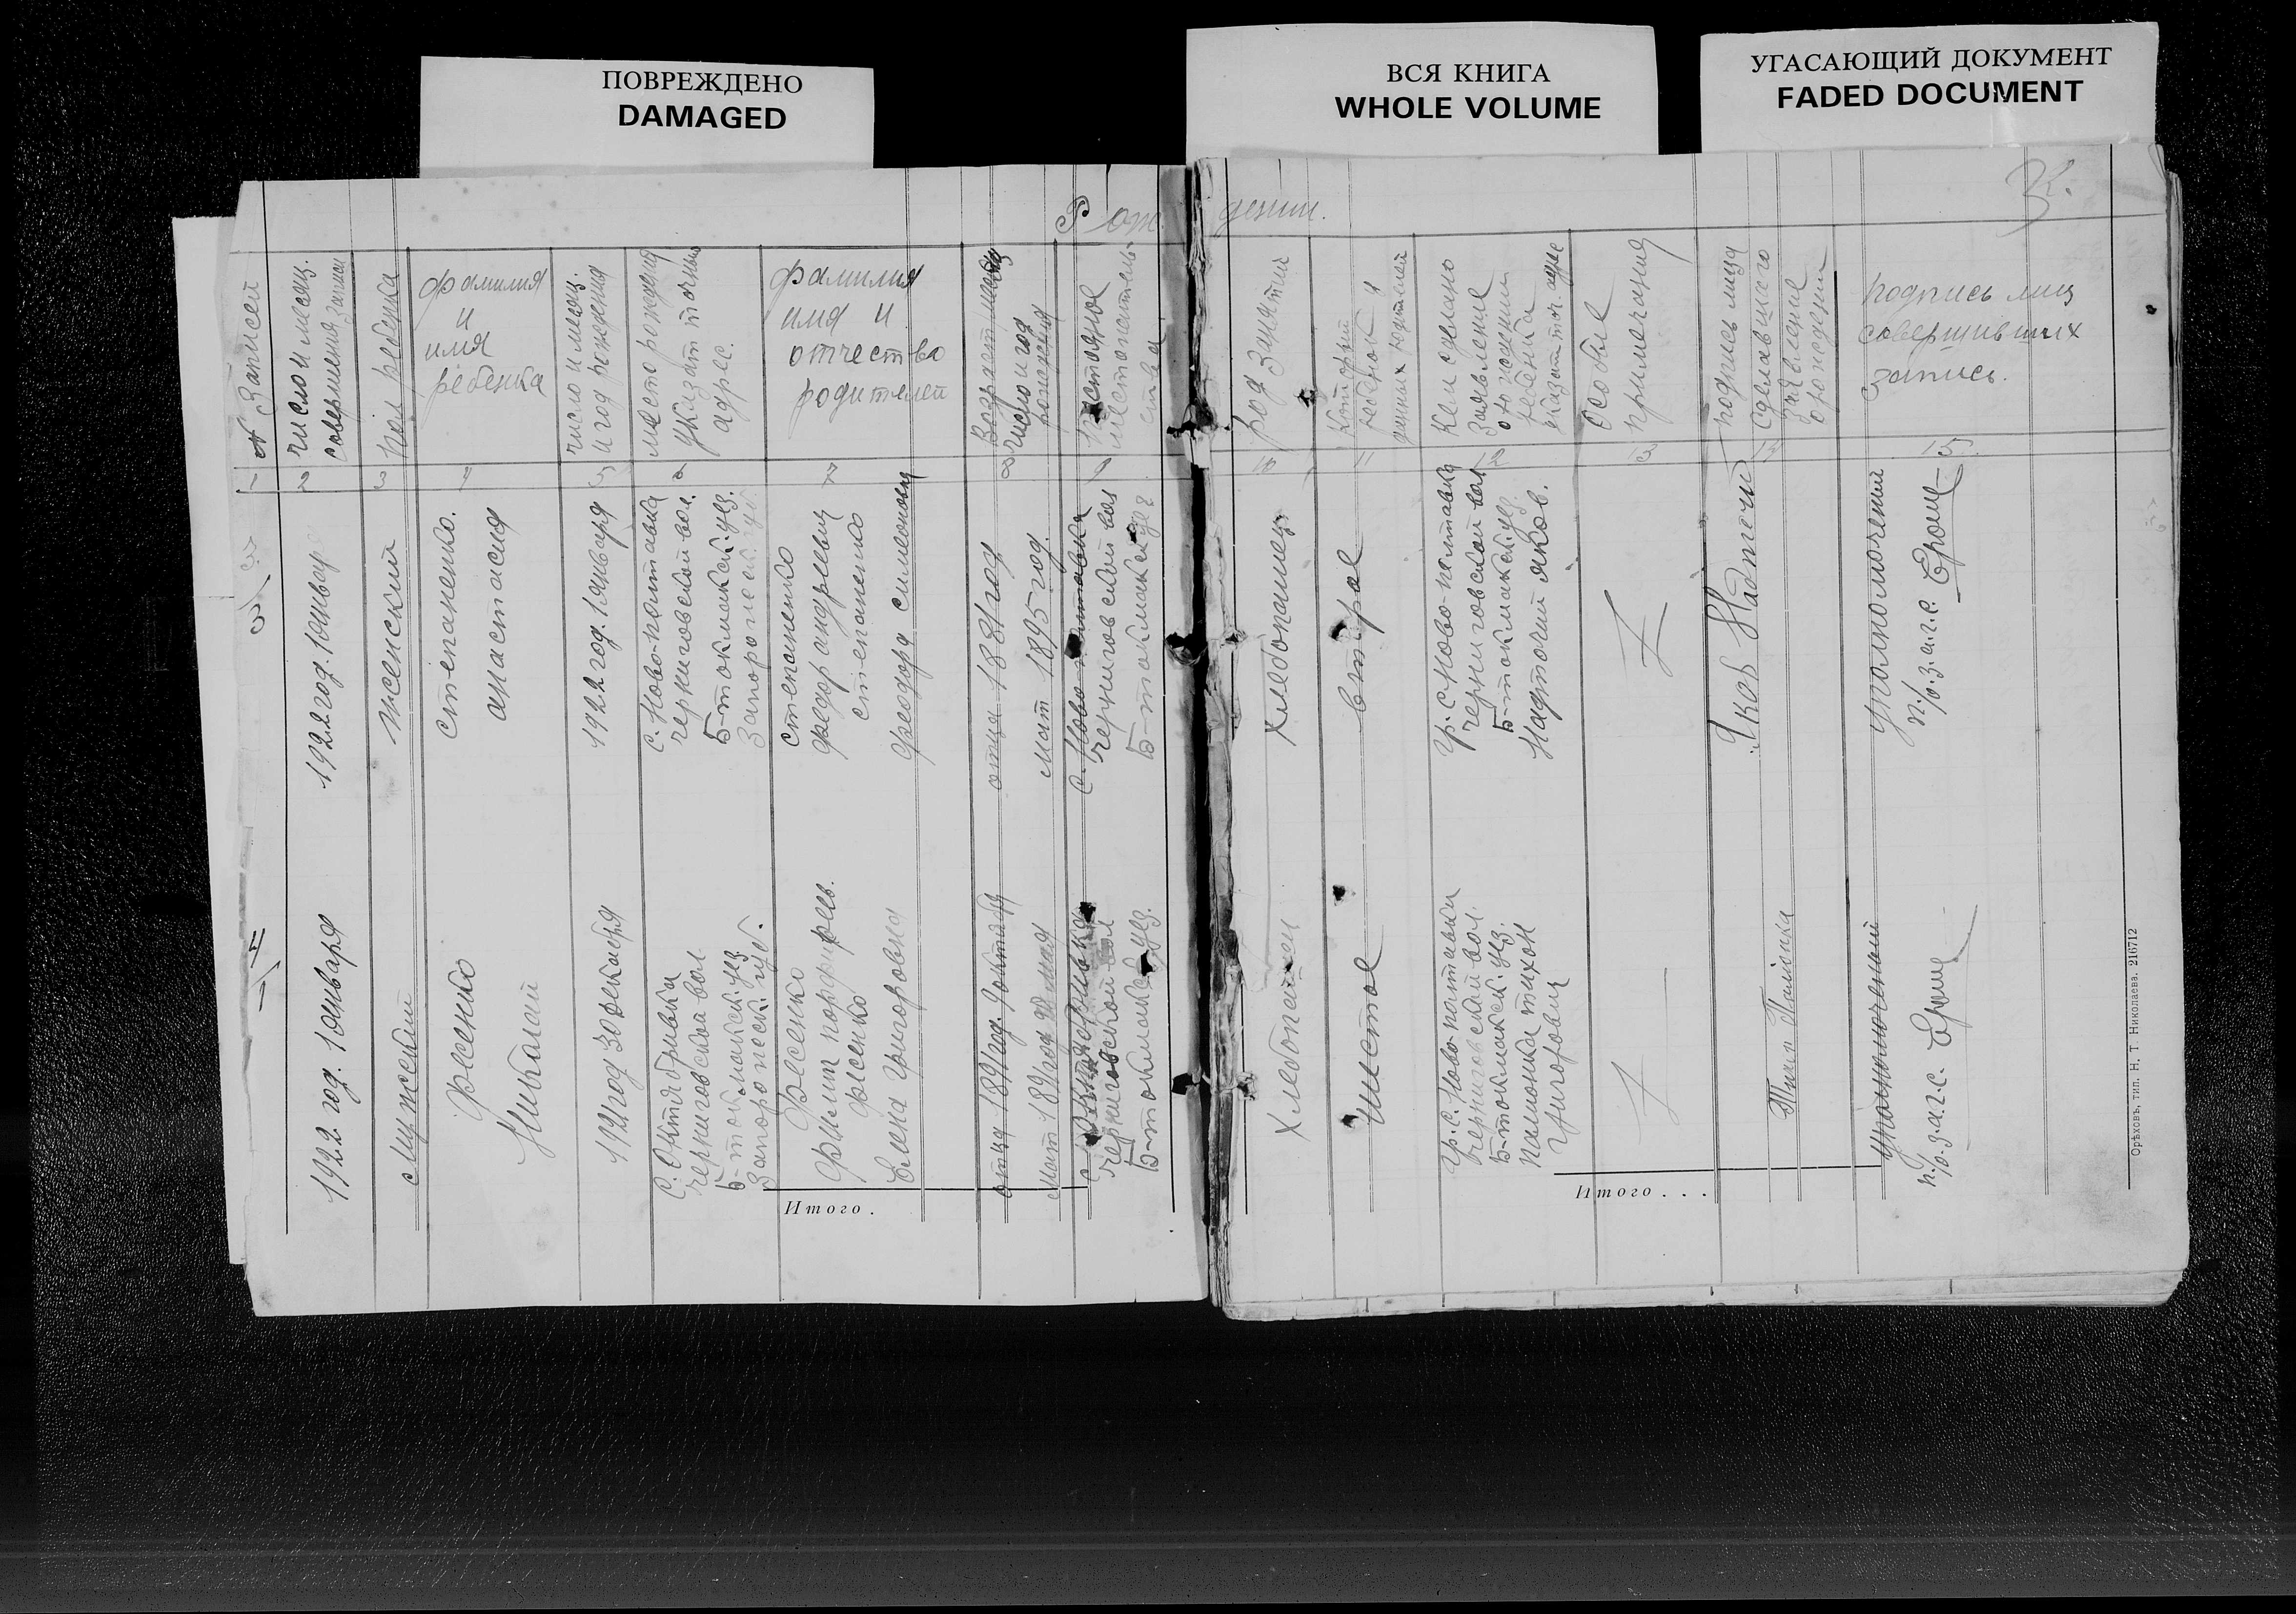 ПОВРЕЖДЕНО
DAMAGED
ВСЯ КНИГА
WHOLE VOLUME
УГАСАЮЩИЙ ДОКУМЕНТ
FADED DOCUMENT
Рож
дении.
№ Записей
число и месяц.
совершения записи
пол ребенка
фамилия
и
имя
ребенка
число и месяц
и год рождения
место рождения
указат точный
адрес.
фамилия
имя и
отчество
родителей
Возраст
число и год
рождения
Постоянное
местожитель
ства
род занятия
который
ребенок у
данных родителей
Кем сделано
заявление
о рождении
ребенка
указат точ. адре
Особые
примечания
подпись лица
сделавшаго
заявление
о рождении
подпись лиц
совершивших
запись.
1
2
3
5
6
7
8
9
10
11
12
13
14
15
3
1922 год. 1 январ
женский
степаненко.
анастасия
1922 год. 1 января
с. Ново-полтавка
черниговской вол.
Б-токмакск. уез.
Запорожск. губ
степаненко
федор андреевич
степаненко
феодора симеоновна
отца 1881 год
мат 1895 год
с. Ново полтавка
черниговской вол
Б-токмакск уез.
Хлебопашец
второе
гр. с. Ново-полтавка
черниговской вол.
Б-токмакск. уез.
Надточий яков.
Яков Надточий
уполномоченый
п/о. З.А.Г.С.
4
1922 год. 1 января
Мужский
Фесенко
Николай
1921 год 30 декабря
с. Октябривка
черниговской вол
Б-токмакск. уез
Запорожск. губ.
Фесенко
Филип порфирьев.
Фесенко
Елена Григоровна
отца 1891 год. 9 октября
мат 1891 год мая
черниговской вол
Б-токмакск уез.
Хлебопашец
шестое
гр. с. Ново полтавки
черниговской вол.
Б-токмакск. уез.
тихон
Григорович
уполномоченый
п/о. З.А.Г.С.
Итого .
Итого . . .
Орѣховъ, тип. Н. Т. Николаева. 216712